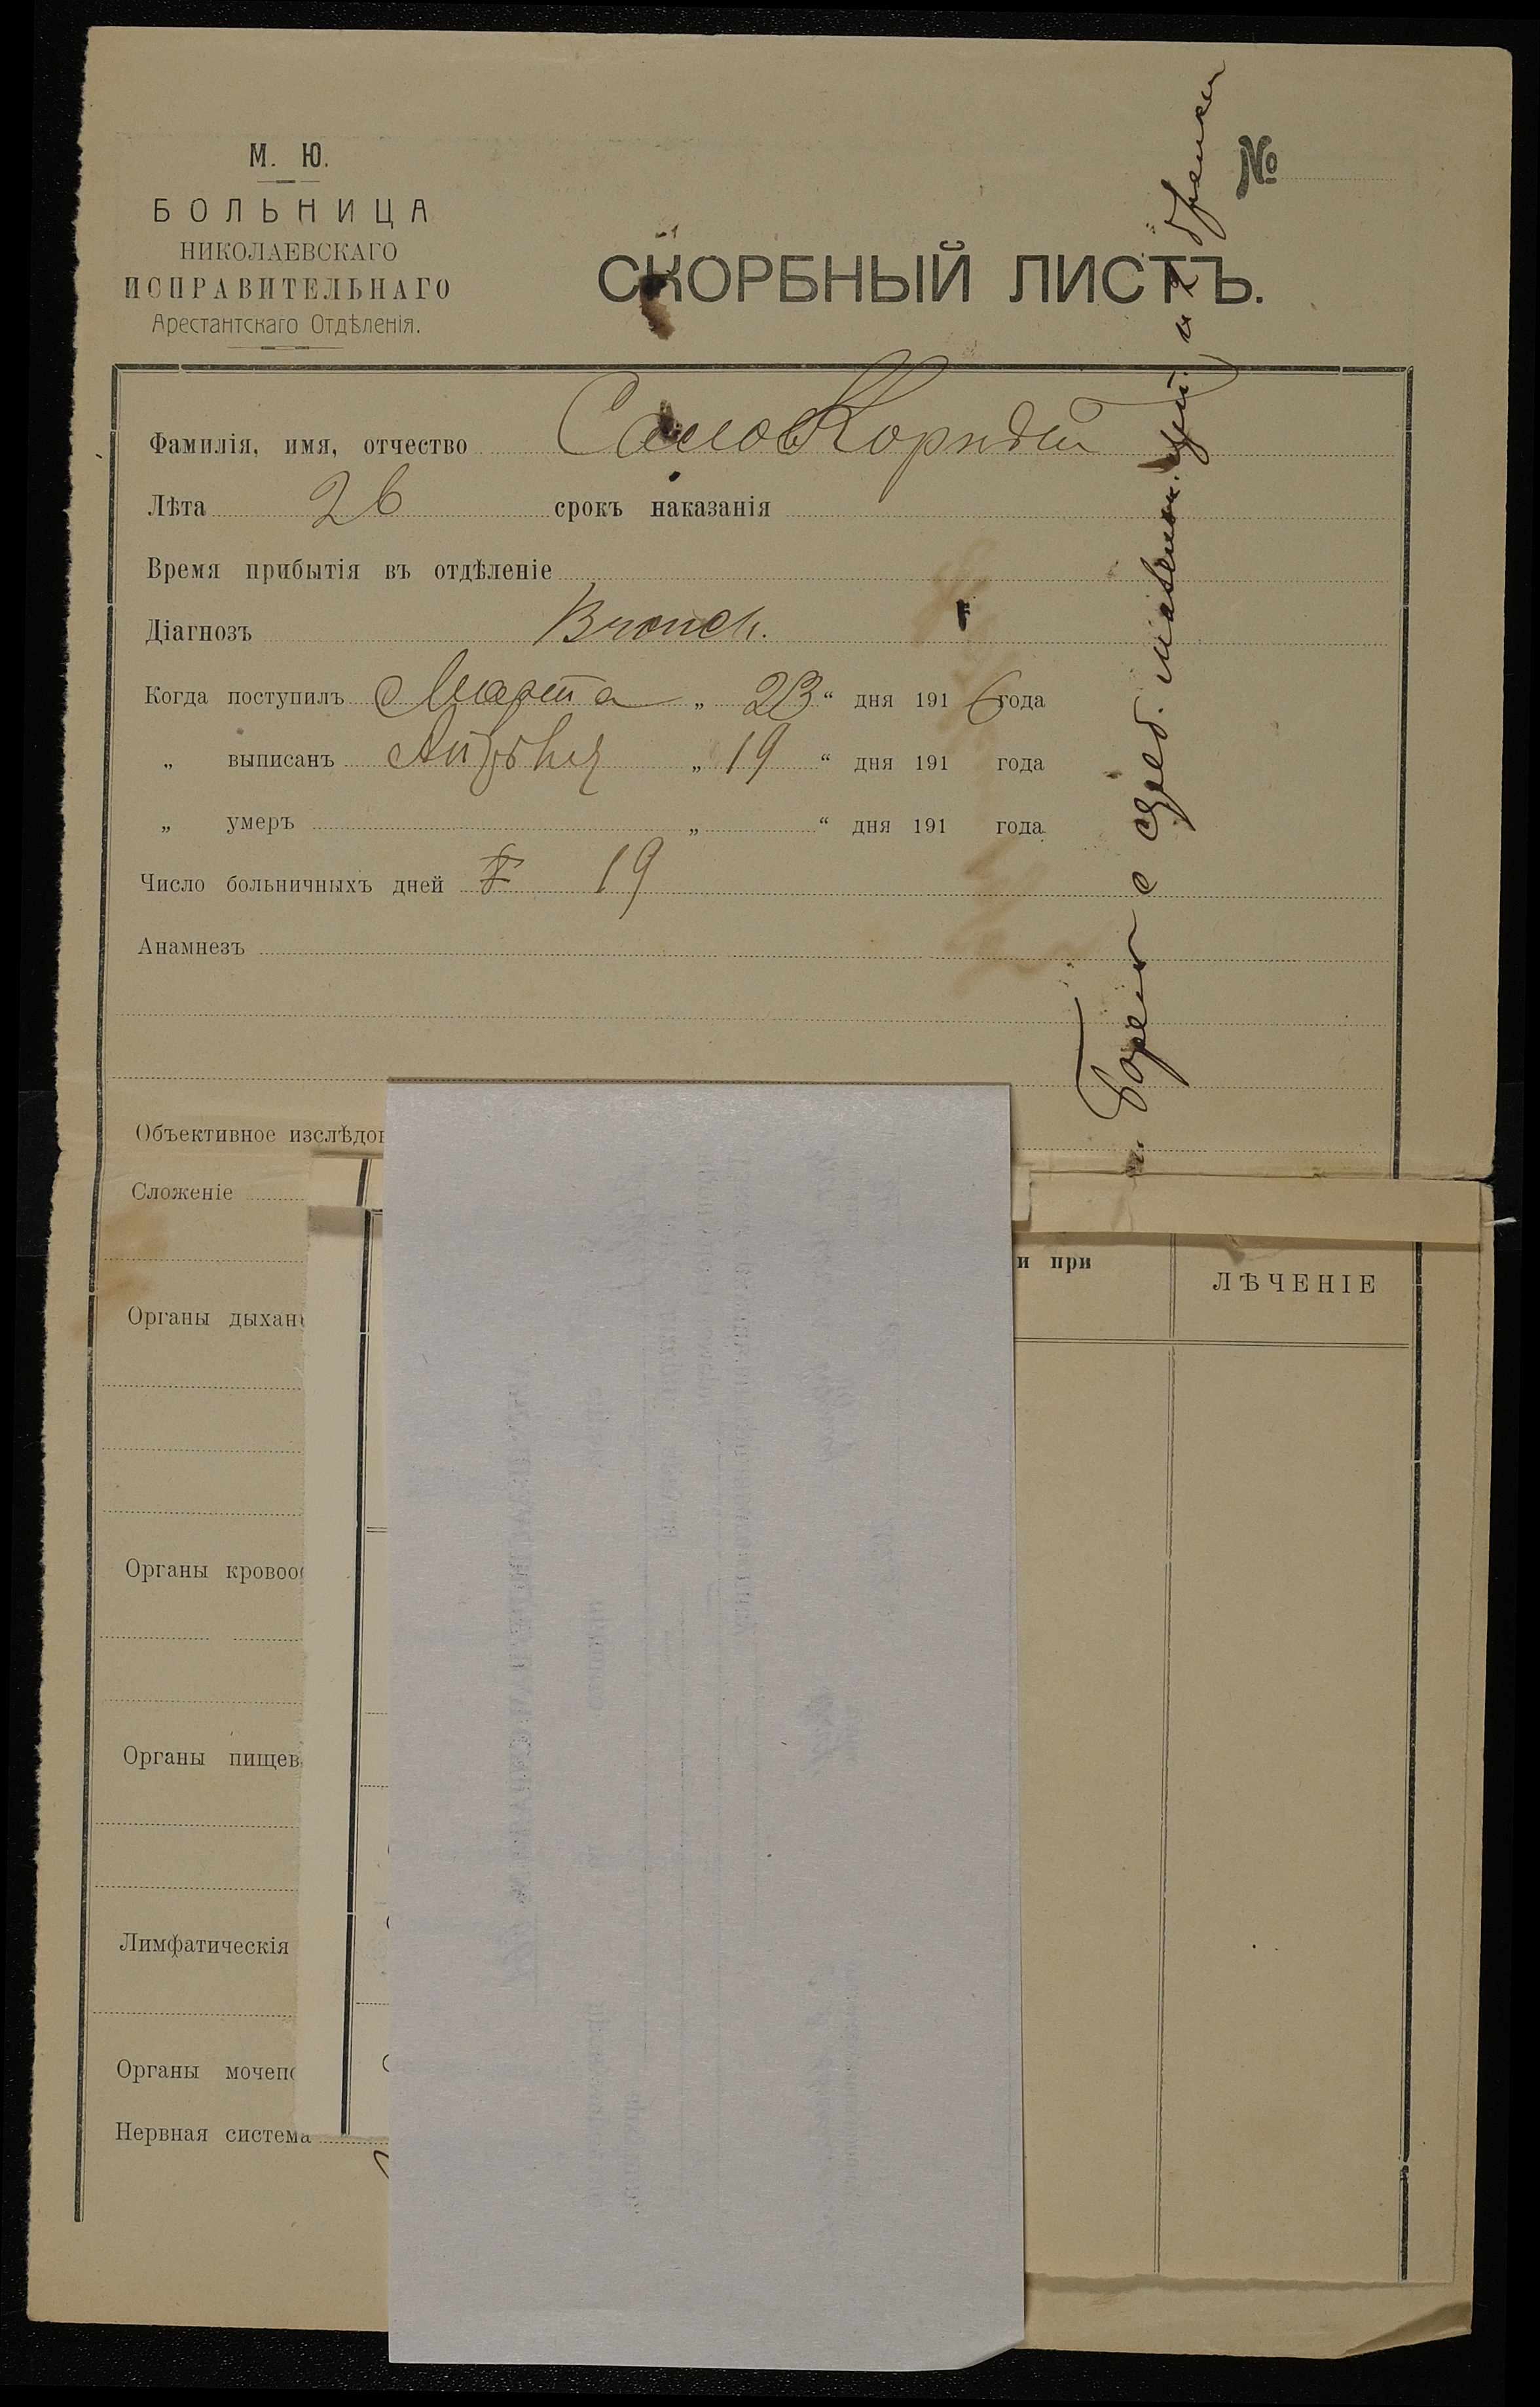 М. Ю.
БОЛЬНИЦА
НИКОЛАЕВСКАГО
ИСПРАВИТЕЛЬНАГО
Арестантскаго Отдѣленія.
№
СКОРБНЫЙ ЛИСТЪ.
Фамилія, имя, отчество
Лѣта 26 срокъ наказанія
Время прибытія въ отдѣленіе
Діагнозъ Bronch.
Когда поступилъ Марта „ 23 “ дня 191 6 года
„ выписанъ Апрѣля „ 19 “ дня 191 года
„ умеръ „ “ дня 191 года
Число больничныхъ дней 19
Анамнезъ
Объективное изслѣдов
Сложеніе
и при
ЛѢЧЕНІЕ
Органы дыхан
Органы кровоо
Органы пищев
Лимфатическія
Органы мочепо
Нервная система